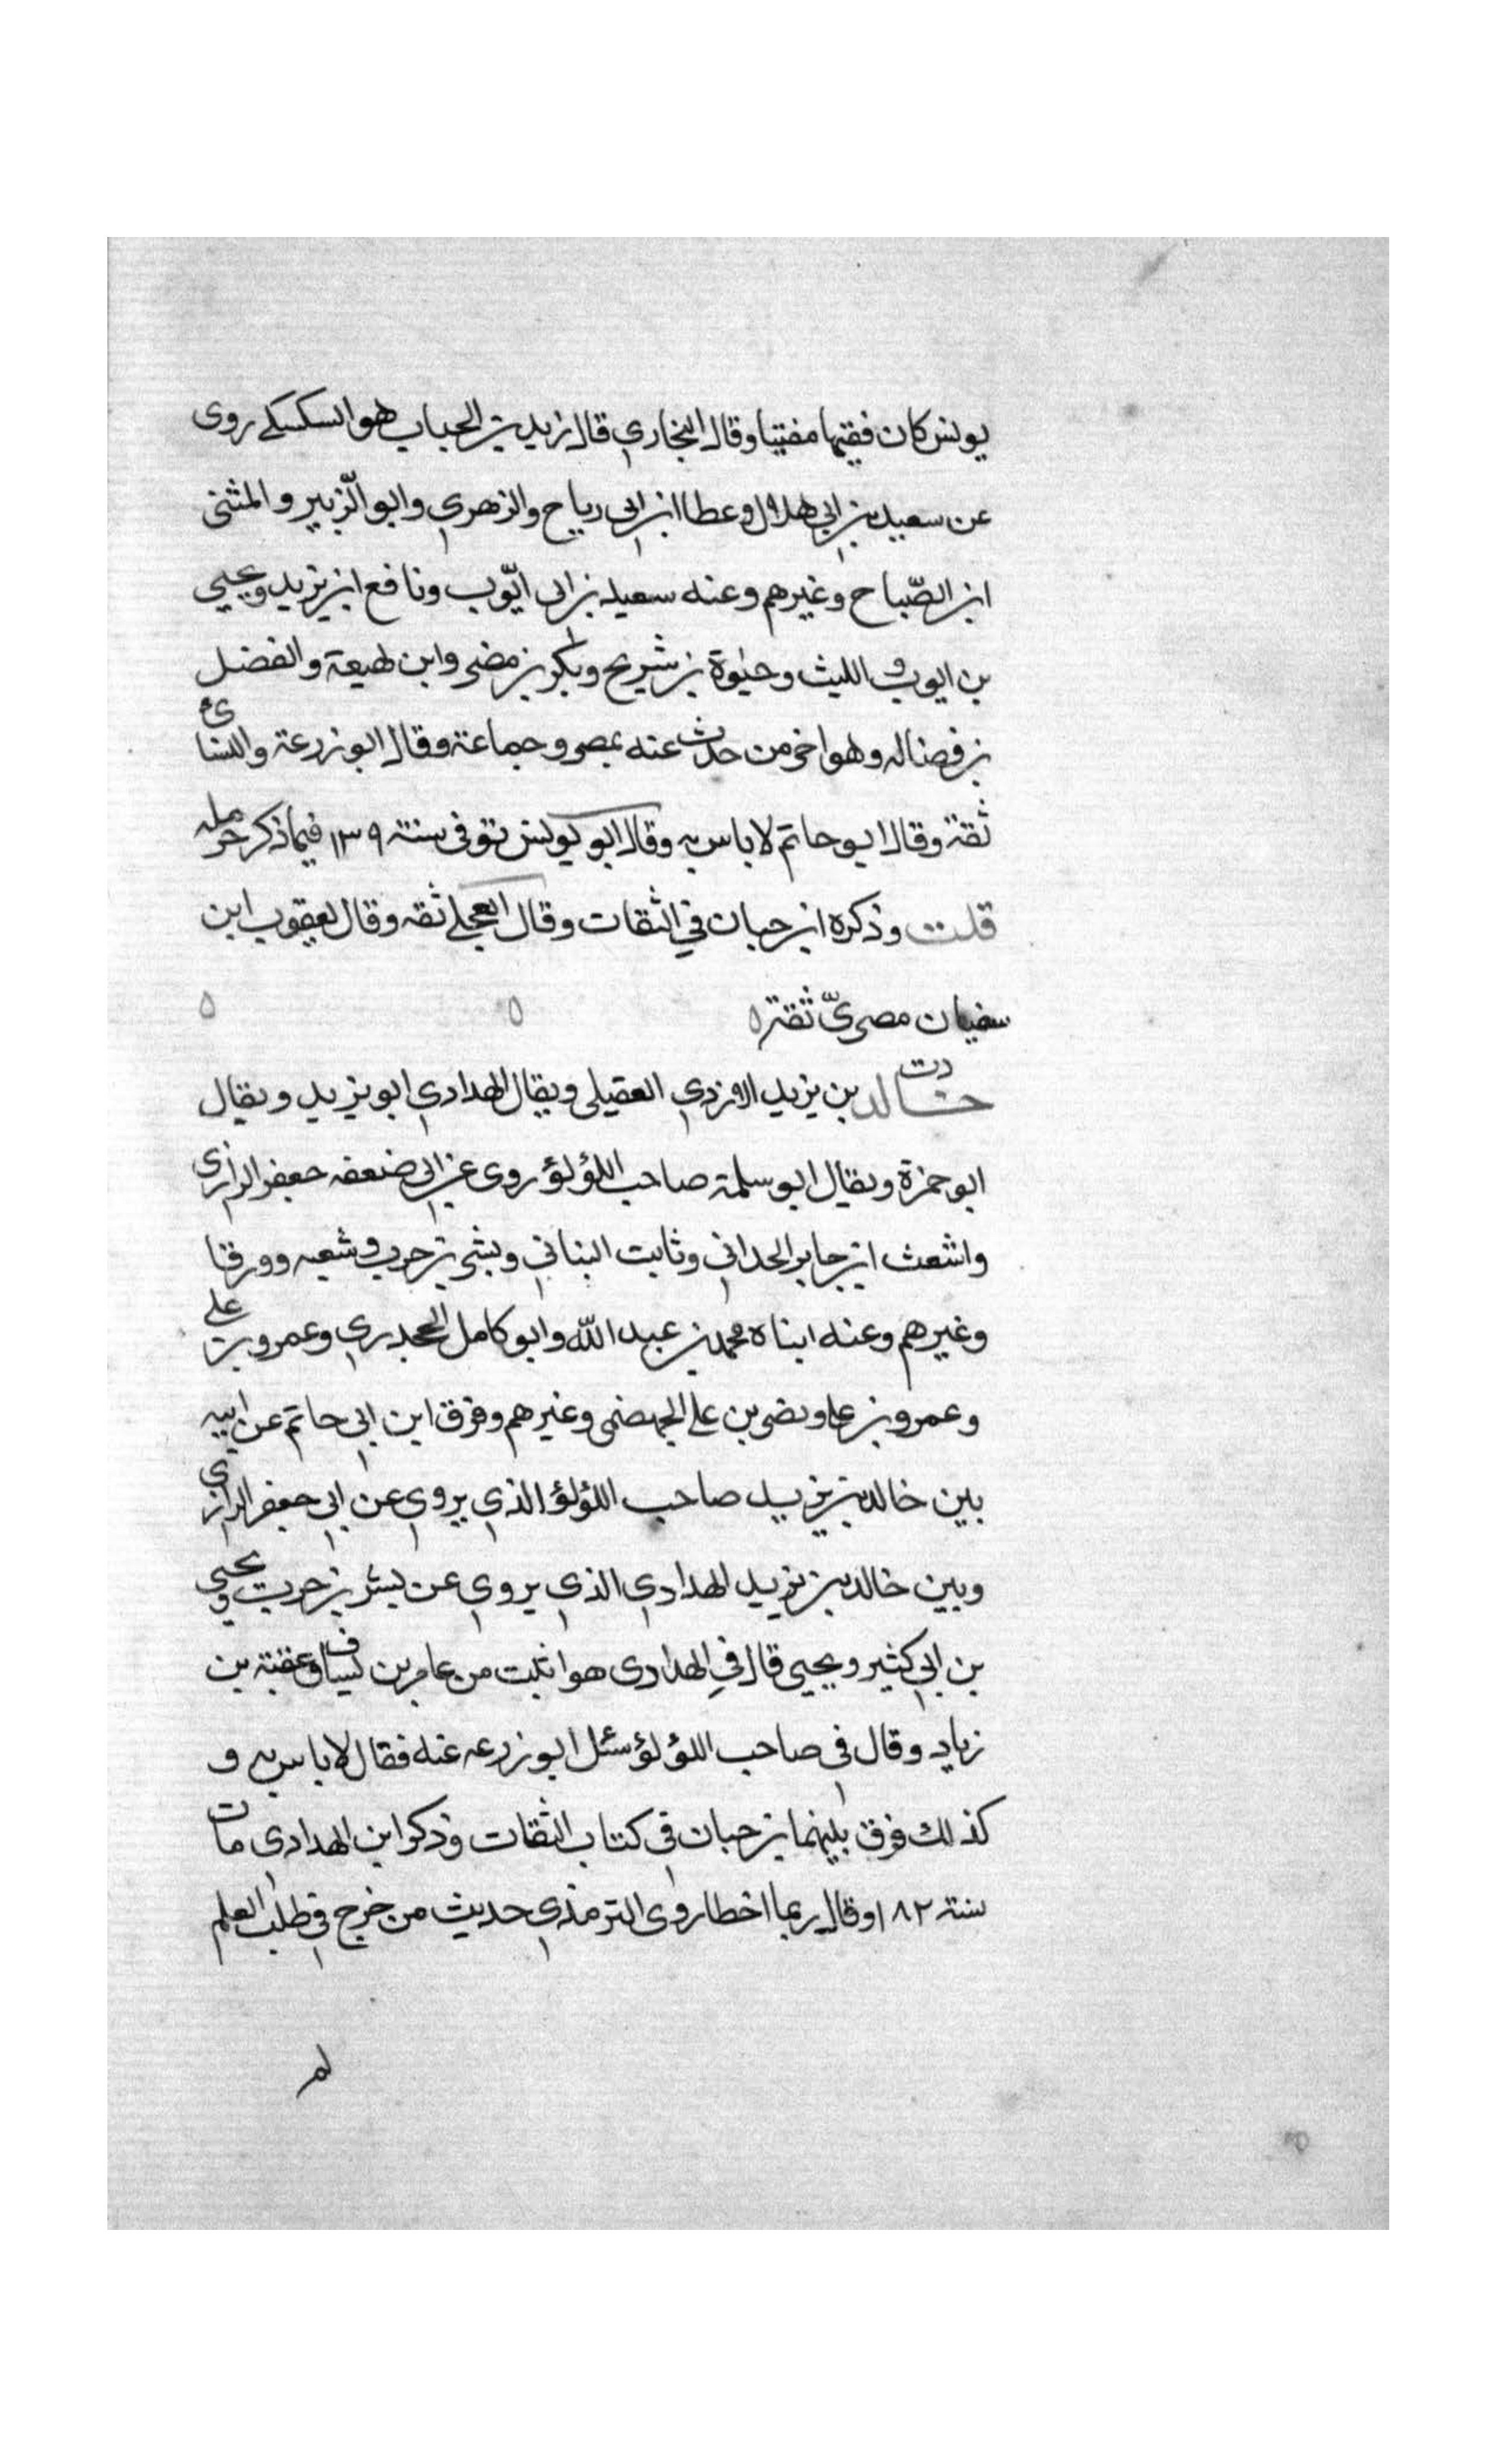 يونس كان فقيها مفتيا وقال البخاري قال زيد بن الحباب هو السكسكي روى
عن سعيد بن ابي هلال وعطا ابن ابي رباح والزهري وابو الزّبير والمثنى
ابن الصّباح وغيرهم وعنه سعيد بن ابي ايّوب ونافع ابن يزيد ويحيى
بن ايوب والليث وحيوة بن شريح وبكر بن مضر وابن لهيعة والفضل
بن فضاله وهو اخر من حدث عنه بمصر وجماعة وقال ابو زرعة والنسائ
ثقة وقال ابو حاتم لا باس به وقال ابو يونس توفى سنة ١٣٩ فيما ذكر حرمله
قلت وذكره ابن حبان في الثقات وقال العجلي ثقه وقال يعقوب ابن
سفيان مصريّ ثقة ٥ ٥ ٥
دت
خالد بن يزيد الازدي العقيلي ويقال الهدادي ابو يزيد ويقال
ابو حمزة ويقال ابو سلمة صاحب اللؤلؤ روى عن ابي جعفر الرازي
واشعث ابن جابر الحداني وثابت البناني وبشر بن حرب وشعبه وورقا
وغيرهم وعنه ابناه محمد بن عبد الله وابو كامل الجحدري وعمرو بن علي
وعمرو بن علي ونصر بن علي الجهضمي وغيرهم وفرق ابن ابي حاتم عن ابيه
بين خالد بن يزيد صاحب اللؤلؤ الذي يروي عن ابي جعفر الرازي
وبين خالد بن يزيد الهدادي الذي يروي عن بشر بن حرب ويحيى
بن ابي كثير ويحيى قال في الهدادي هو اثبت من عامر بن يساف وعقبة بن
زياد وقال في صاحب اللؤلؤ سئل ابو زرعه عنه فقال لا باس به و
كذلك فرق بينهما بن حبان في كتاب الثقات وذكر ابن الهدادي مات
سنة ١٨٢ وقال ربما اخطا روى الترمذي حديث من خرج في طلب العلم
لم